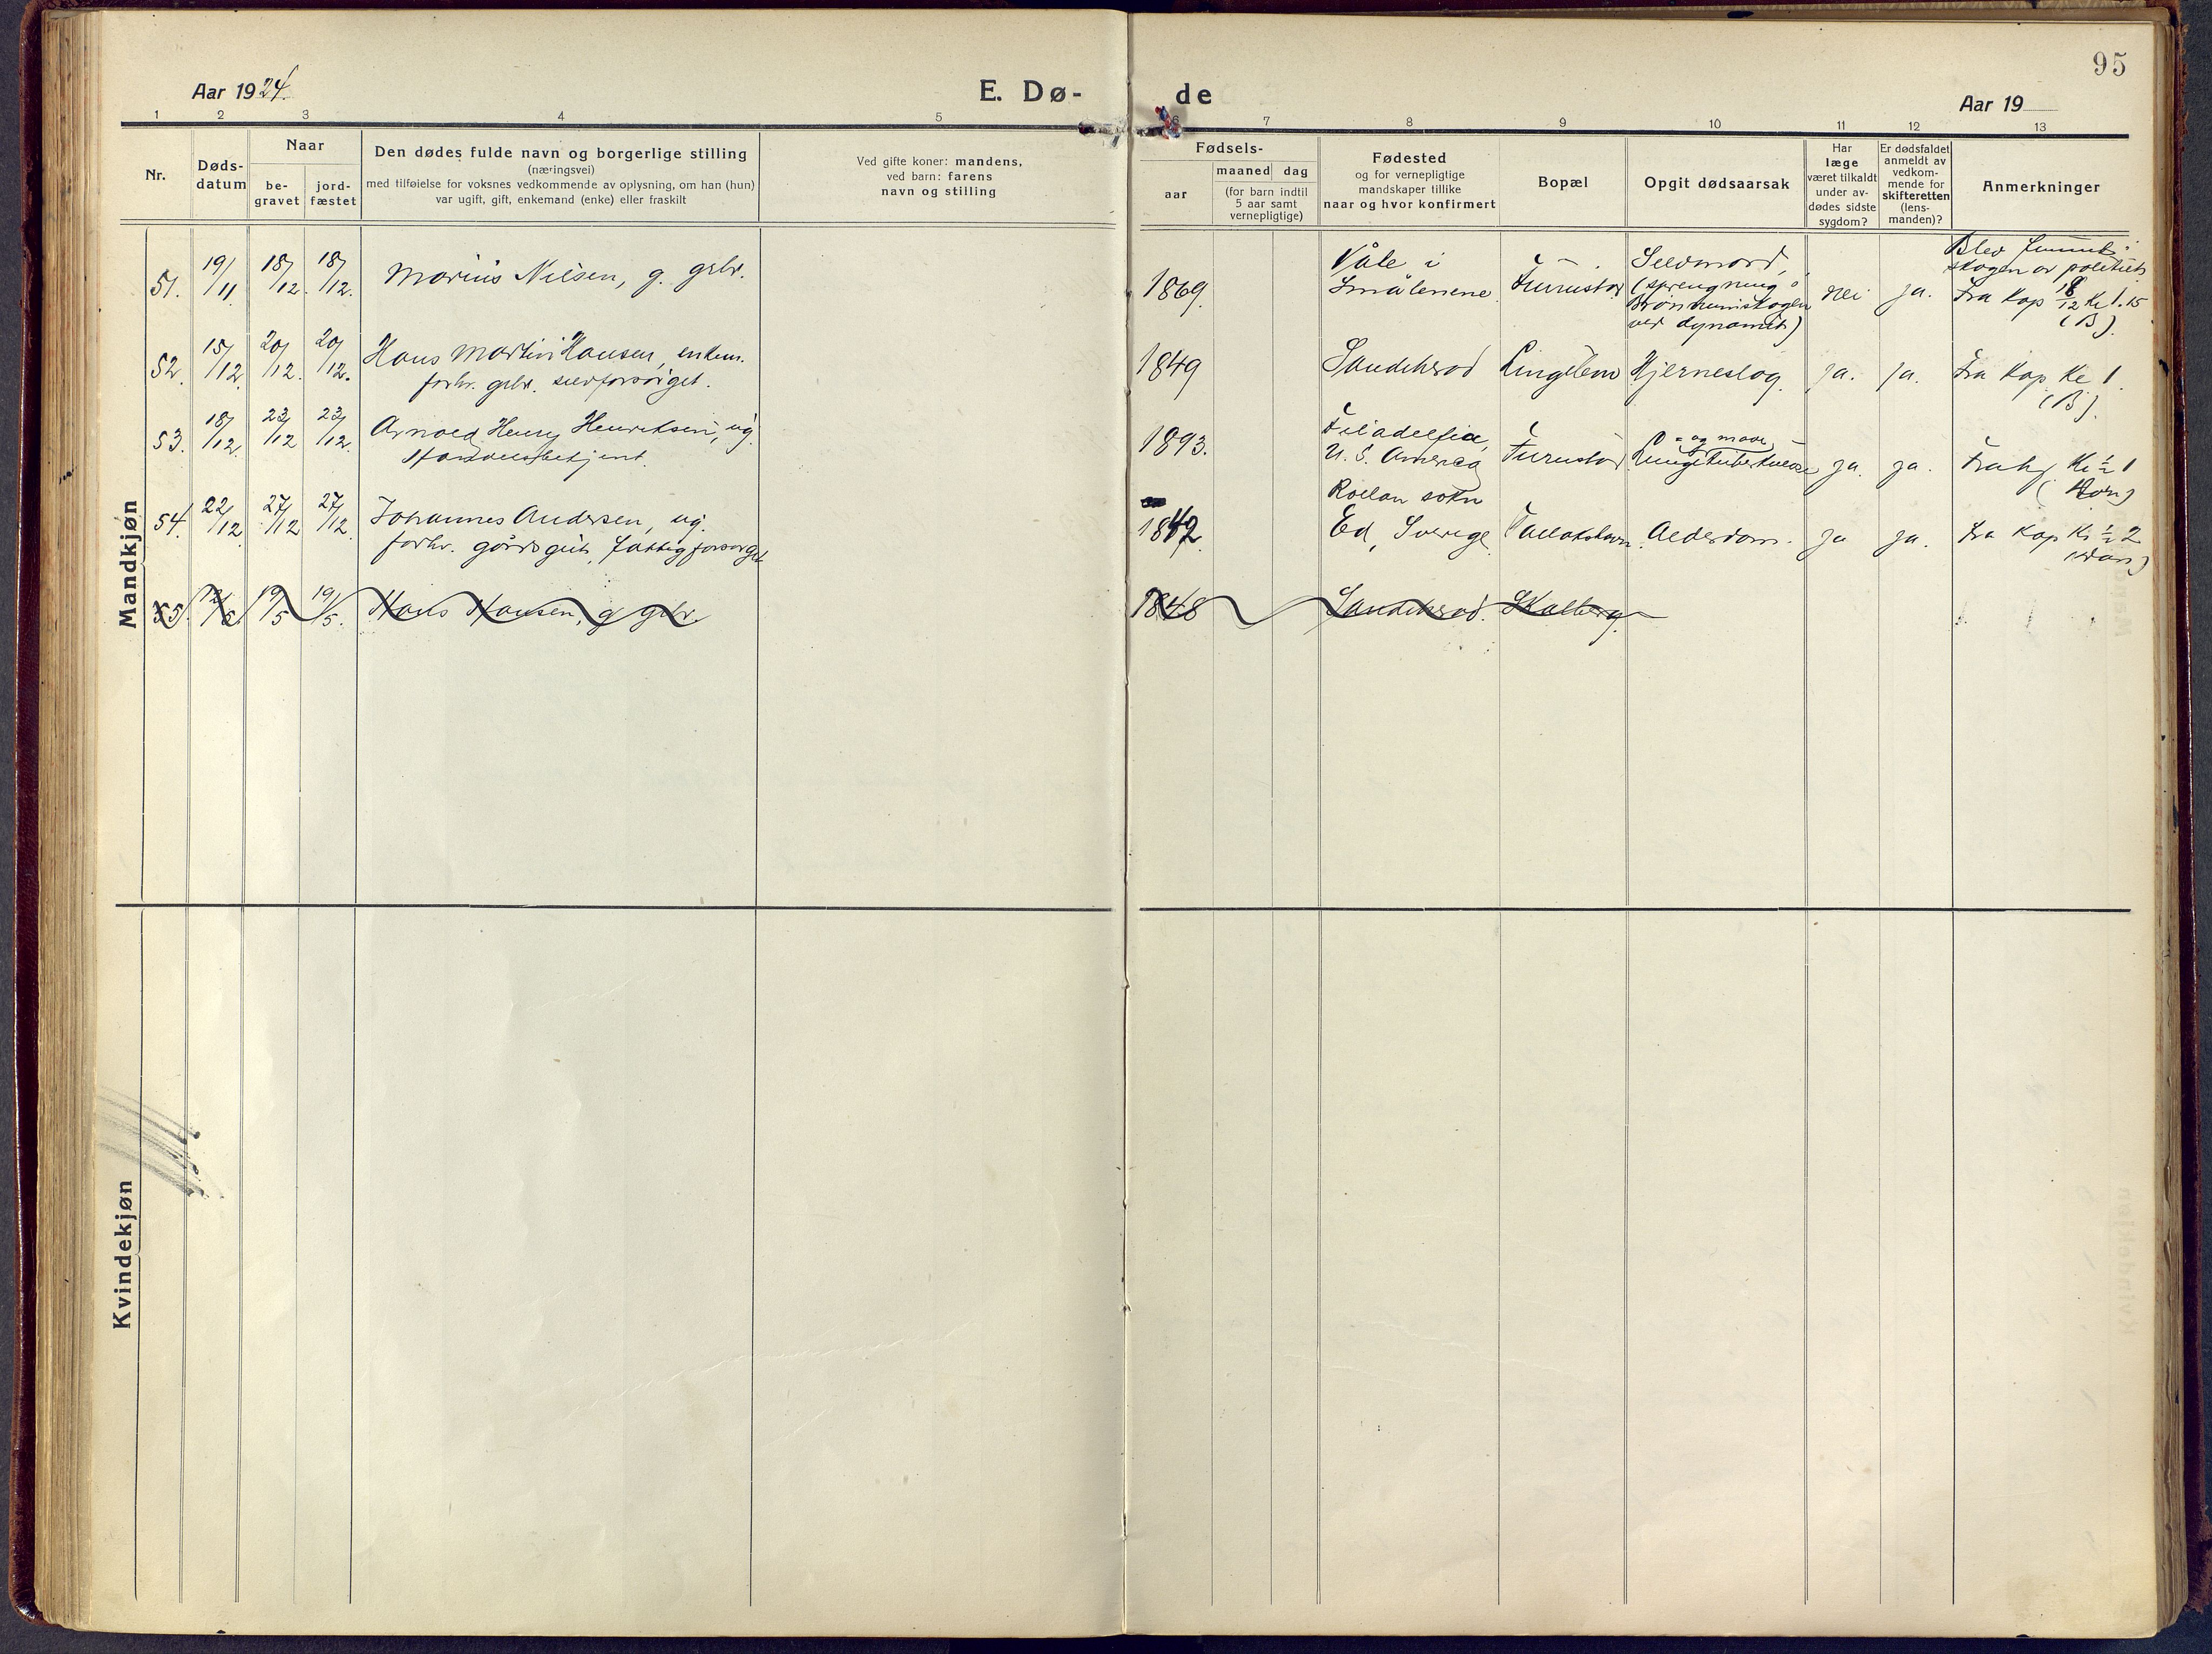 95
Aar 1924.
E. Dø-
de
Aar 19
1 2 3 4 5 6 7 8 9 10 11 12 13
Nr.
Døds-
datum
Naar
be-
gravet
jord-
fæstet
Den dødes fulde navn og borgerlige stilling
(næringsvei)
med tilføielse for voksnes vedkommende av oplysning, om han (hun)
var ugift, gift, enkemand (enke) eller fraskilt
Ved gifte koner: mandens,
ved barn: farens
navn og stilling
Fødsels-
aar
maaned dag
(for barn indtil
5 aar samt
vernepligtige)
Fødested
og for vernepligtige
mandskaper tillike
naar og hvor konfirmert
Bopæl
Opgit dødsaarsak
Har
læge
været tilkaldt
under av-
dødes sidste
sygdom?
Er dødsfaldet
anmeldt av
vedkom-
mende for
skifteretten
(lens-
manden)?
Anmerkninger
Mandkjøn
51. 19/11 18/12. 18/12. Marius Nilsen, g. grbr.
1869.
Våle i
Smålenene
Furustad
Selvmord,
(sprengning i
ved dynamit)
nei
ja.
skogen av politiet.
Fra Kap 18/12 Kl 1.15
(B).
52. 15/12. 20/12. 20/12. Hans Martin Hansen, enkem.
forhv. grbr. selvforsørget.
1849
Sandeherad
Lingelem
Hjerneslag.
ja.
ja.
Fra Kap Kl 1.
(B).
53. 18/12. 23/12 23/12. Arnold Henry Henriksen, ug.
Handelsbetjent.
1893.
Filadelfia,
U. S. America
Furustad
= og mave
Lungetuberkulose
ja.
ja.
Fra hj. Kl ½ 1
54. 22/12. 27/12 27/12. Johannes Andersen, ug.
forhv. gårdsgut, fattigforsørget
1842.
sokn
Ed, Sverige.
Alderdom.
ja
ja.
fra Kap Kl ½ 2
55. 12/5. 19/5 19/5. Hans Hansen, g grbr.
1848
Sandeherad.
Skalberg.
Kvindekjøn